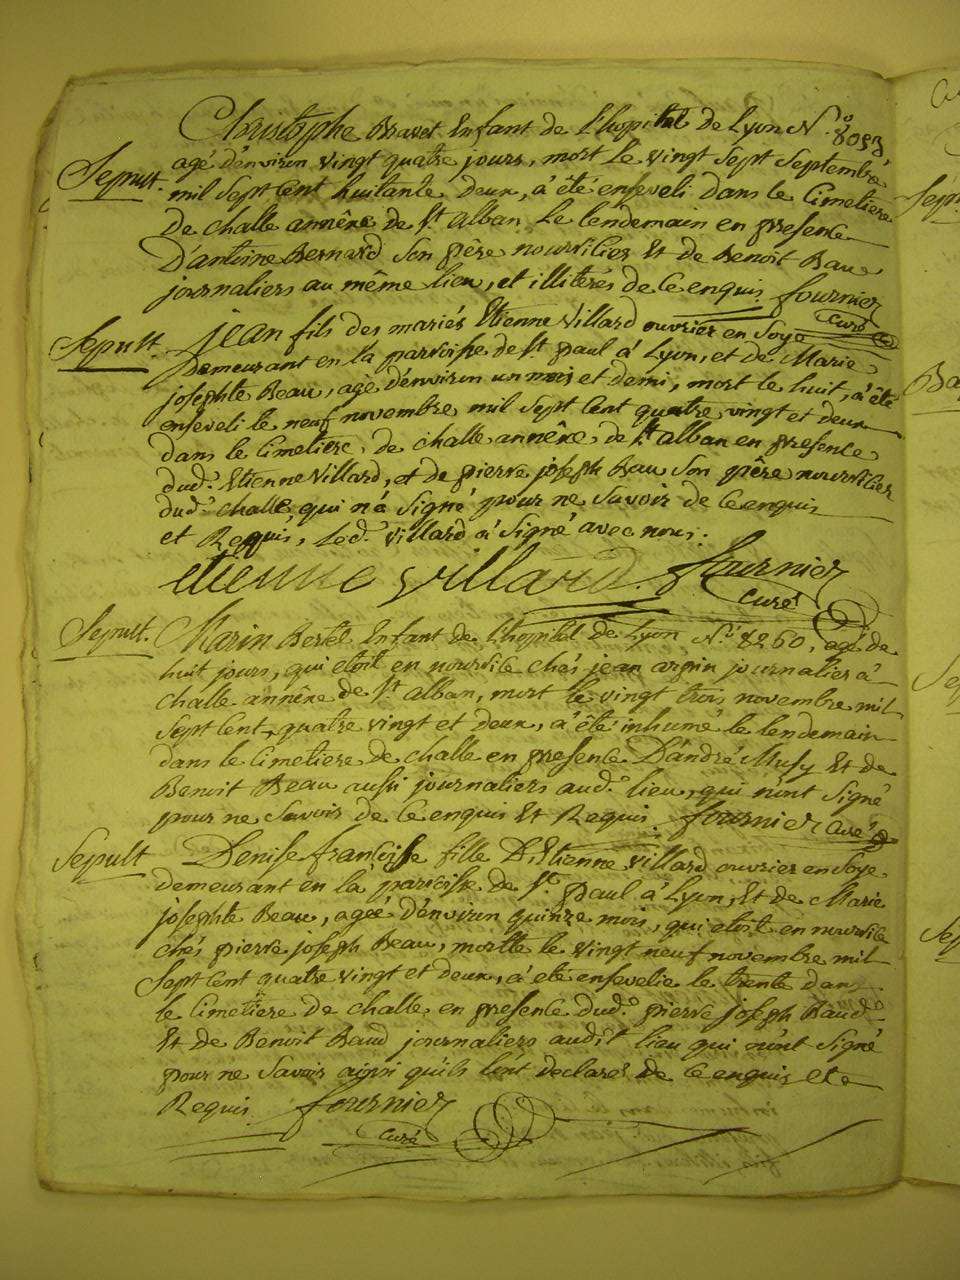 Christophe Bavet Enfant de l'hopital de Lyon N.o 8093
Sepult.
agé d'environ vingt quatre jours, mort le vingt sept septembre
mil sept cent huitante deux, a été enseveli dans le Cimetiere
de challe annêxe de St alban le lendemain en presence
D'antoine Bernard son père nourricier Et de Benoit Bau
journaliers au même lieu, et illiterés de ce enquis. fournier
curé
Sepult.
jean fils des mariés Etienne Villard ouvrier en soye
Demeurant en la parroisse de St paul à Lyon, et de Marie
josephte Beau, agé d'environ un mois et demi, mort le huit, a été
enseveli le neuf novembre mil sept cent quatre vingt et deux
dans le Cimetiere de challe annêxe de St alban en presence
dud.t Etienne Villard, et de pierre joseph Bau son père nourricier
dud.t challe, qui n'a signé pour ne savoir de ce enquis
et Requis, Led.t Villard a signé avec nous.
etienne villard. fournier
curé
Sepult.
Marin Bertet Enfant de l'hopital de Lyon N.o 8260, agé de
huit jours, qui etoit en nourrice chés jean argin journalier à
challe annêxe de St alban, mort le vingt trois novembre mil
sept cent quatre vingt et deux, a été inhumé le lendemain
dans le Cimetiere de challe en presence D'andré Musy Et de
Benoit Beau aussi journaliers aud.t lieu, qui n'ont signé
pour ne savoir de ce enquis Et Requis. fournier curé
Sepult
Denise françoise fille D'Etienne Villard ouvrier en soye
demeurant en la parroisse de St. paul à Lyon, Et de Marie
josephte Beau, ageé d'environ quinze mois, qui etoit en nourrice
chés pierre joseph Beau, morte le vingt neuf novembre mil
sept cent quatre vingt et deux, a eté ensevelie le trente dans
le Cimetiere de challe en presence dud.t pierre joseph Baud
Et de Benoit Baud journaliers audit lieu qui n'ont signé
pour ne savoir ainsi qu'ils l'ont declaré de ce enquis et
Requis fournier
curé